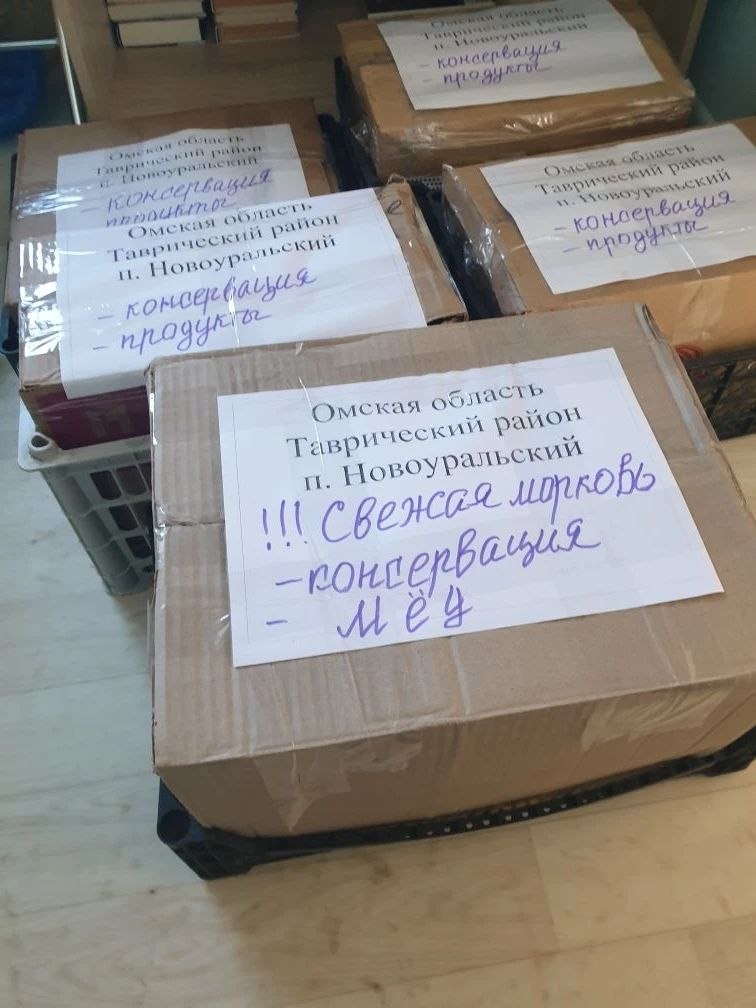 Омская область
Таврический район
п. Новоуральский
- консервация
- продукты
Омская область
Таврический район
п. Новоуральский
- консервация
продукты
Омская область
Таврический район
п. Новоуральский
- консервация
- продукты
Омская область
Таврический район
п. Новоуральский
- консервация
- продукты
Омская область
Таврический район
п. Новоуральский
!!! Свежая морковь
- консервация
- мёд